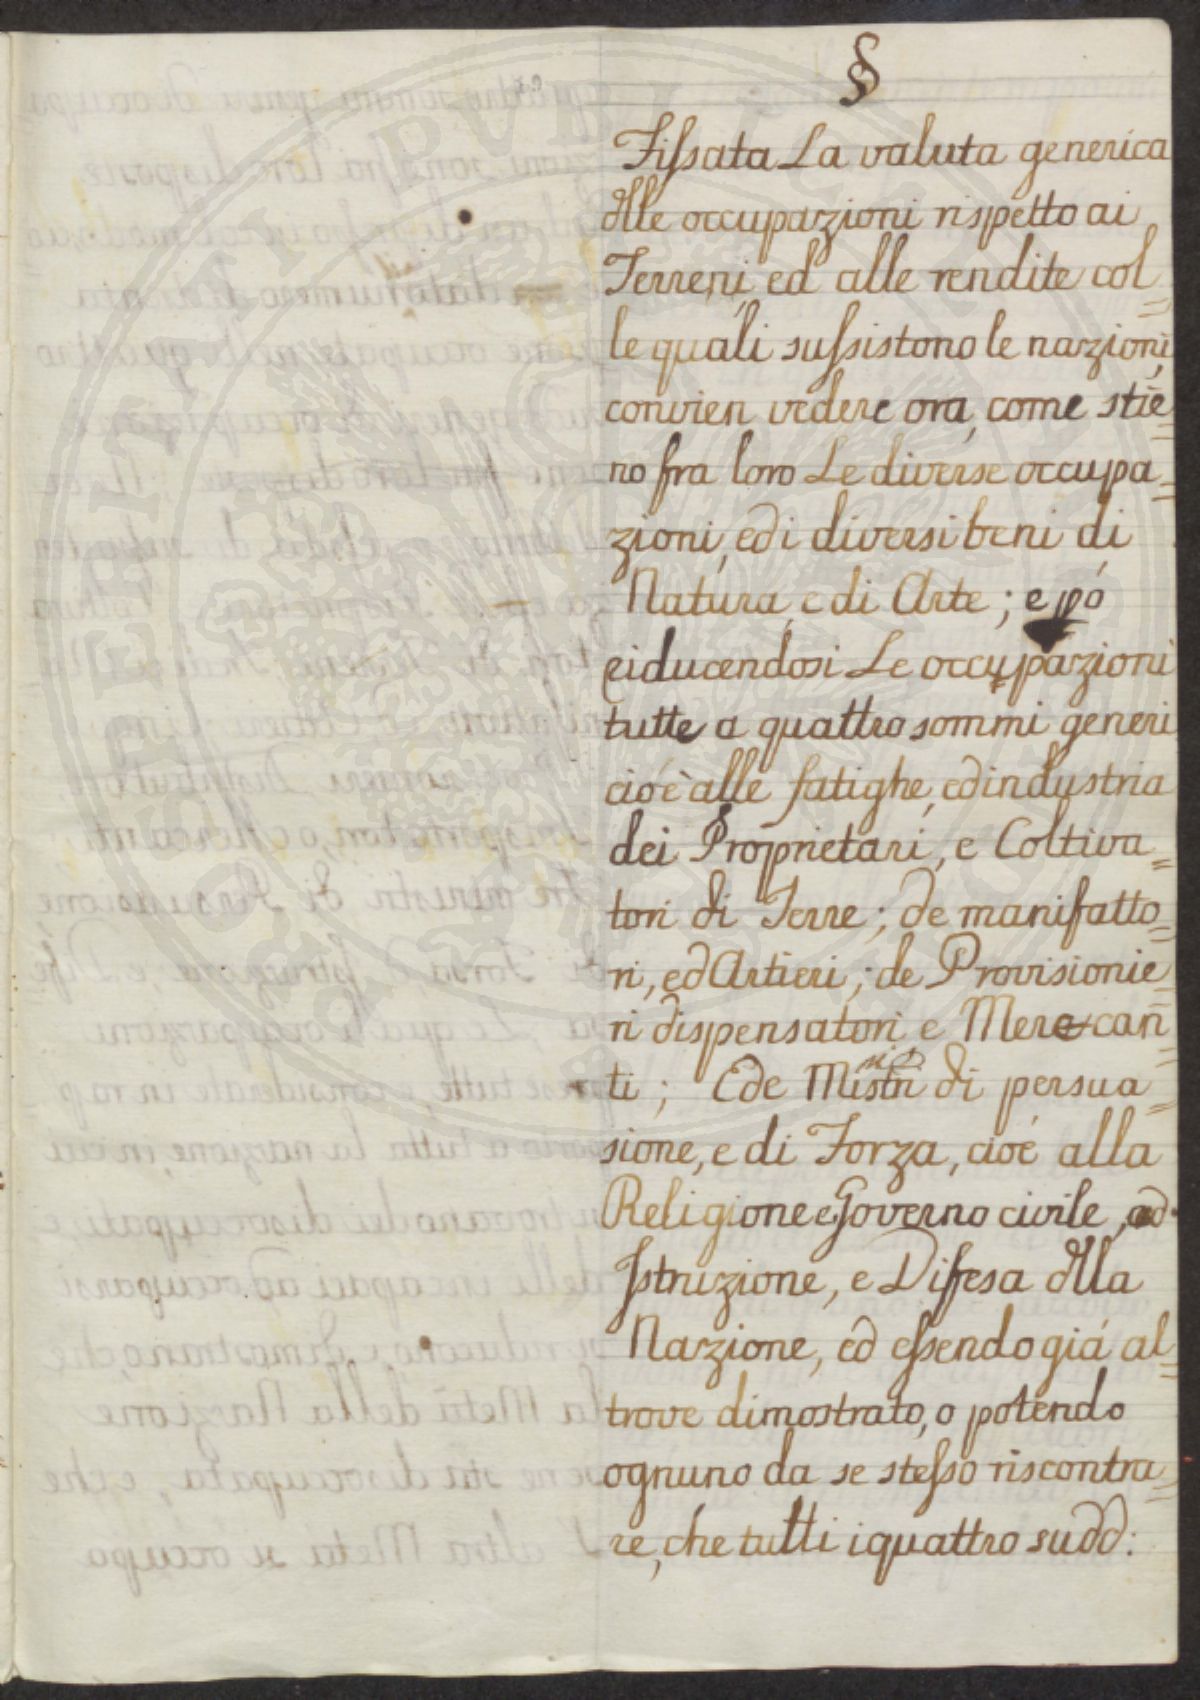 §
Fissata La valuta generica
dlle occupazioni rispetto ai
Terreni, ed alle rendite col=
le quali sussistono le nazioni,
convien vedere ora, come stiē=
no fra loro Le diverse occupa=
zioni, ed i diversi beni di
Natura, e di Arte; e pó
riducendosi Le occupazioni
tutte a quattro sommi generi
cioé è alle fatighe, ed industria
dei Proprietari, e Coltiva=
tori di Terre; de manifatto=
ri, ed Artieri; de Provisionie=
ri dispensatori e Mercan̄=
ti; E de Mistri di persua=
sione, e di Forza, cioé alla
Religione e Governo civile, ad
Istruzione, e Difesa dlla
Nazione, ed essendo giá al=
trove dimostrato, o potendo
ognuno da se stesso riscontra=
re, che tutti i quattro sudd: